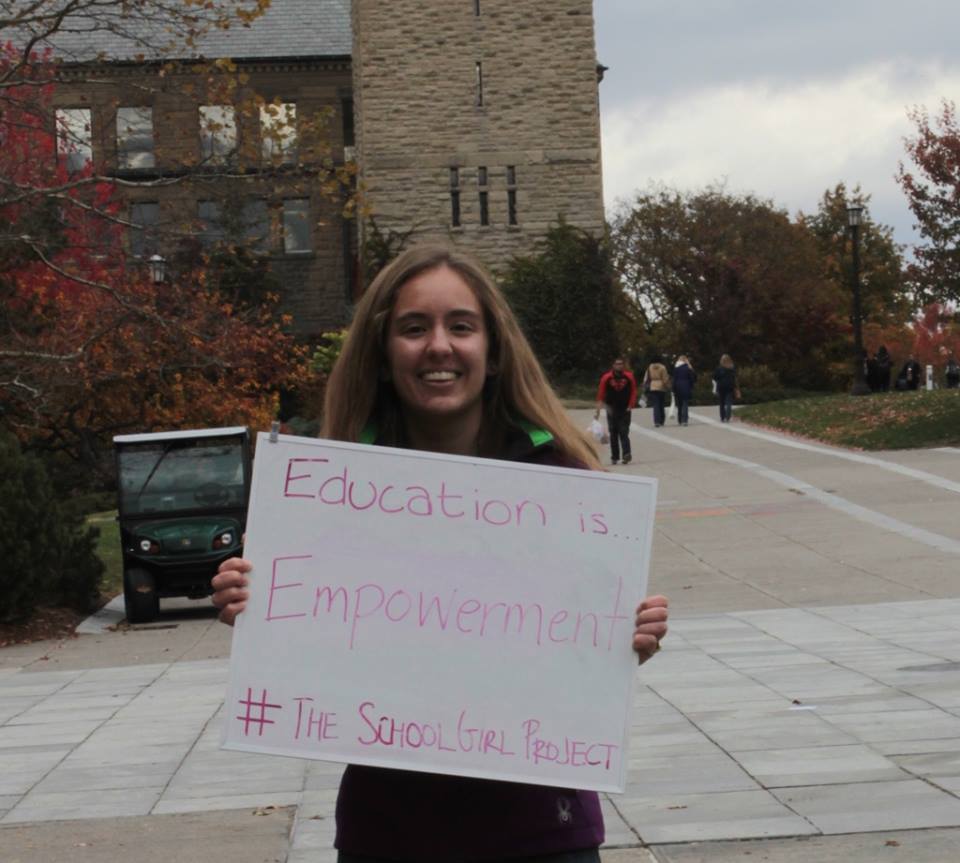 Education is...
Empowerment
# THE SCHOOLGIRL PROJECT